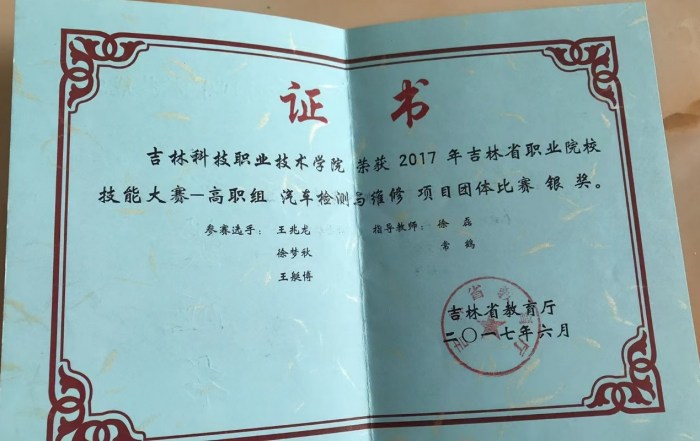 证书
吉林科技职业技术学院 荣获 2017 年吉林省职业院校
技能大赛—高职组 汽车检测与维修 项目团体比赛 银 奖。
参赛选手: 王兆龙 指导教师: 徐磊
徐梦欣 常鹤
王艇博
吉林省教育厅
二〇一七年六月